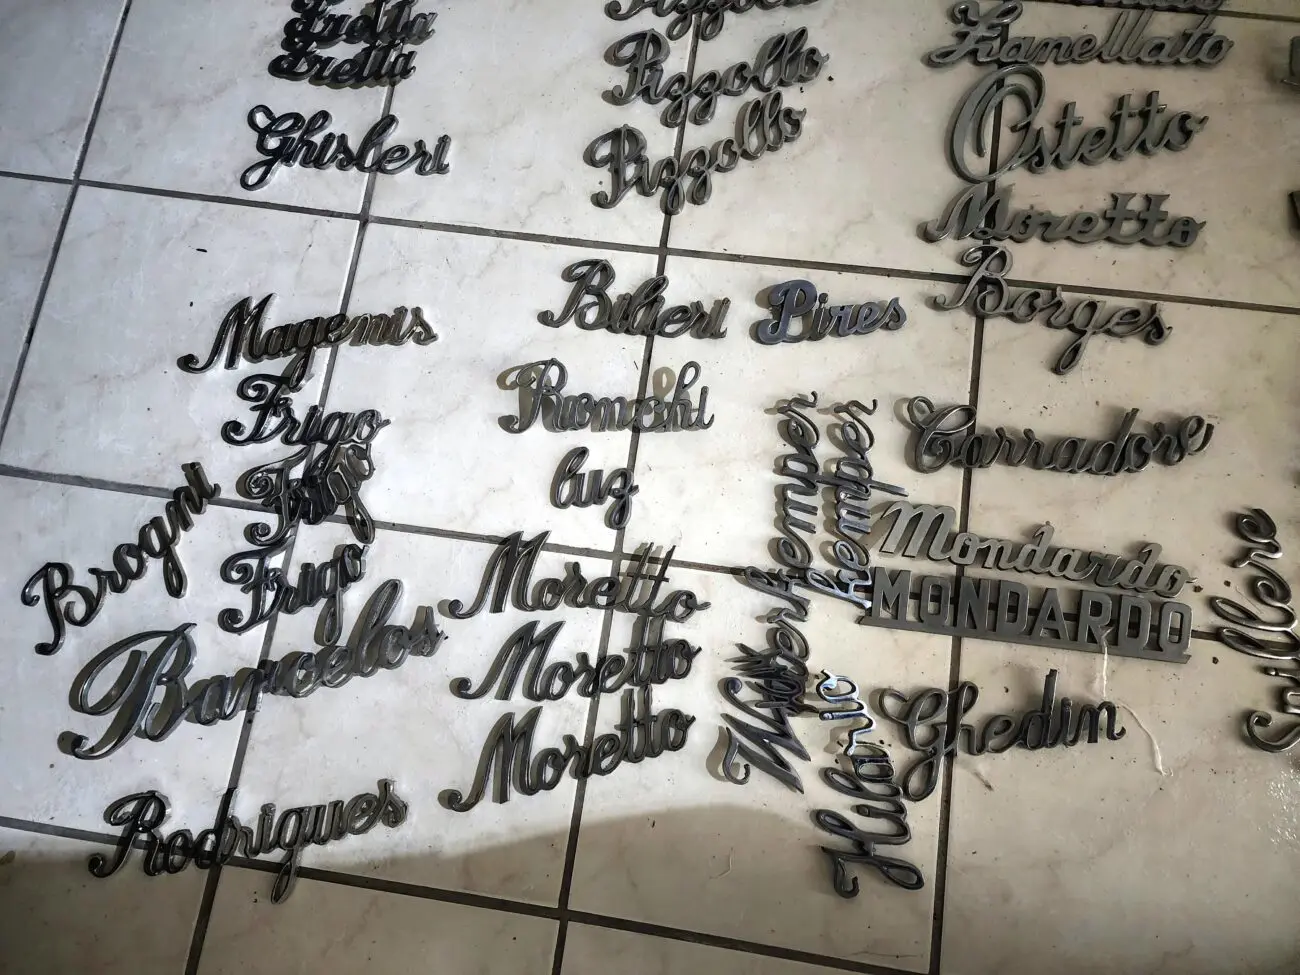 Fretta
Fretta
Ghisleri
Pizzollo
Pizzollo
Pizzollo
Zanellato
Ostetto
Moretto
Borges
Magenis
Frigo
Frigo
Frigo
Brogni
Barcelos
Rodrigues
Bilieri
Pires
Ronchi
Luz
Moretto
Moretto
Moretto
Kemper
Kemper
Hilario
Carradore
Mondardo
MONDARDO
Ghedin